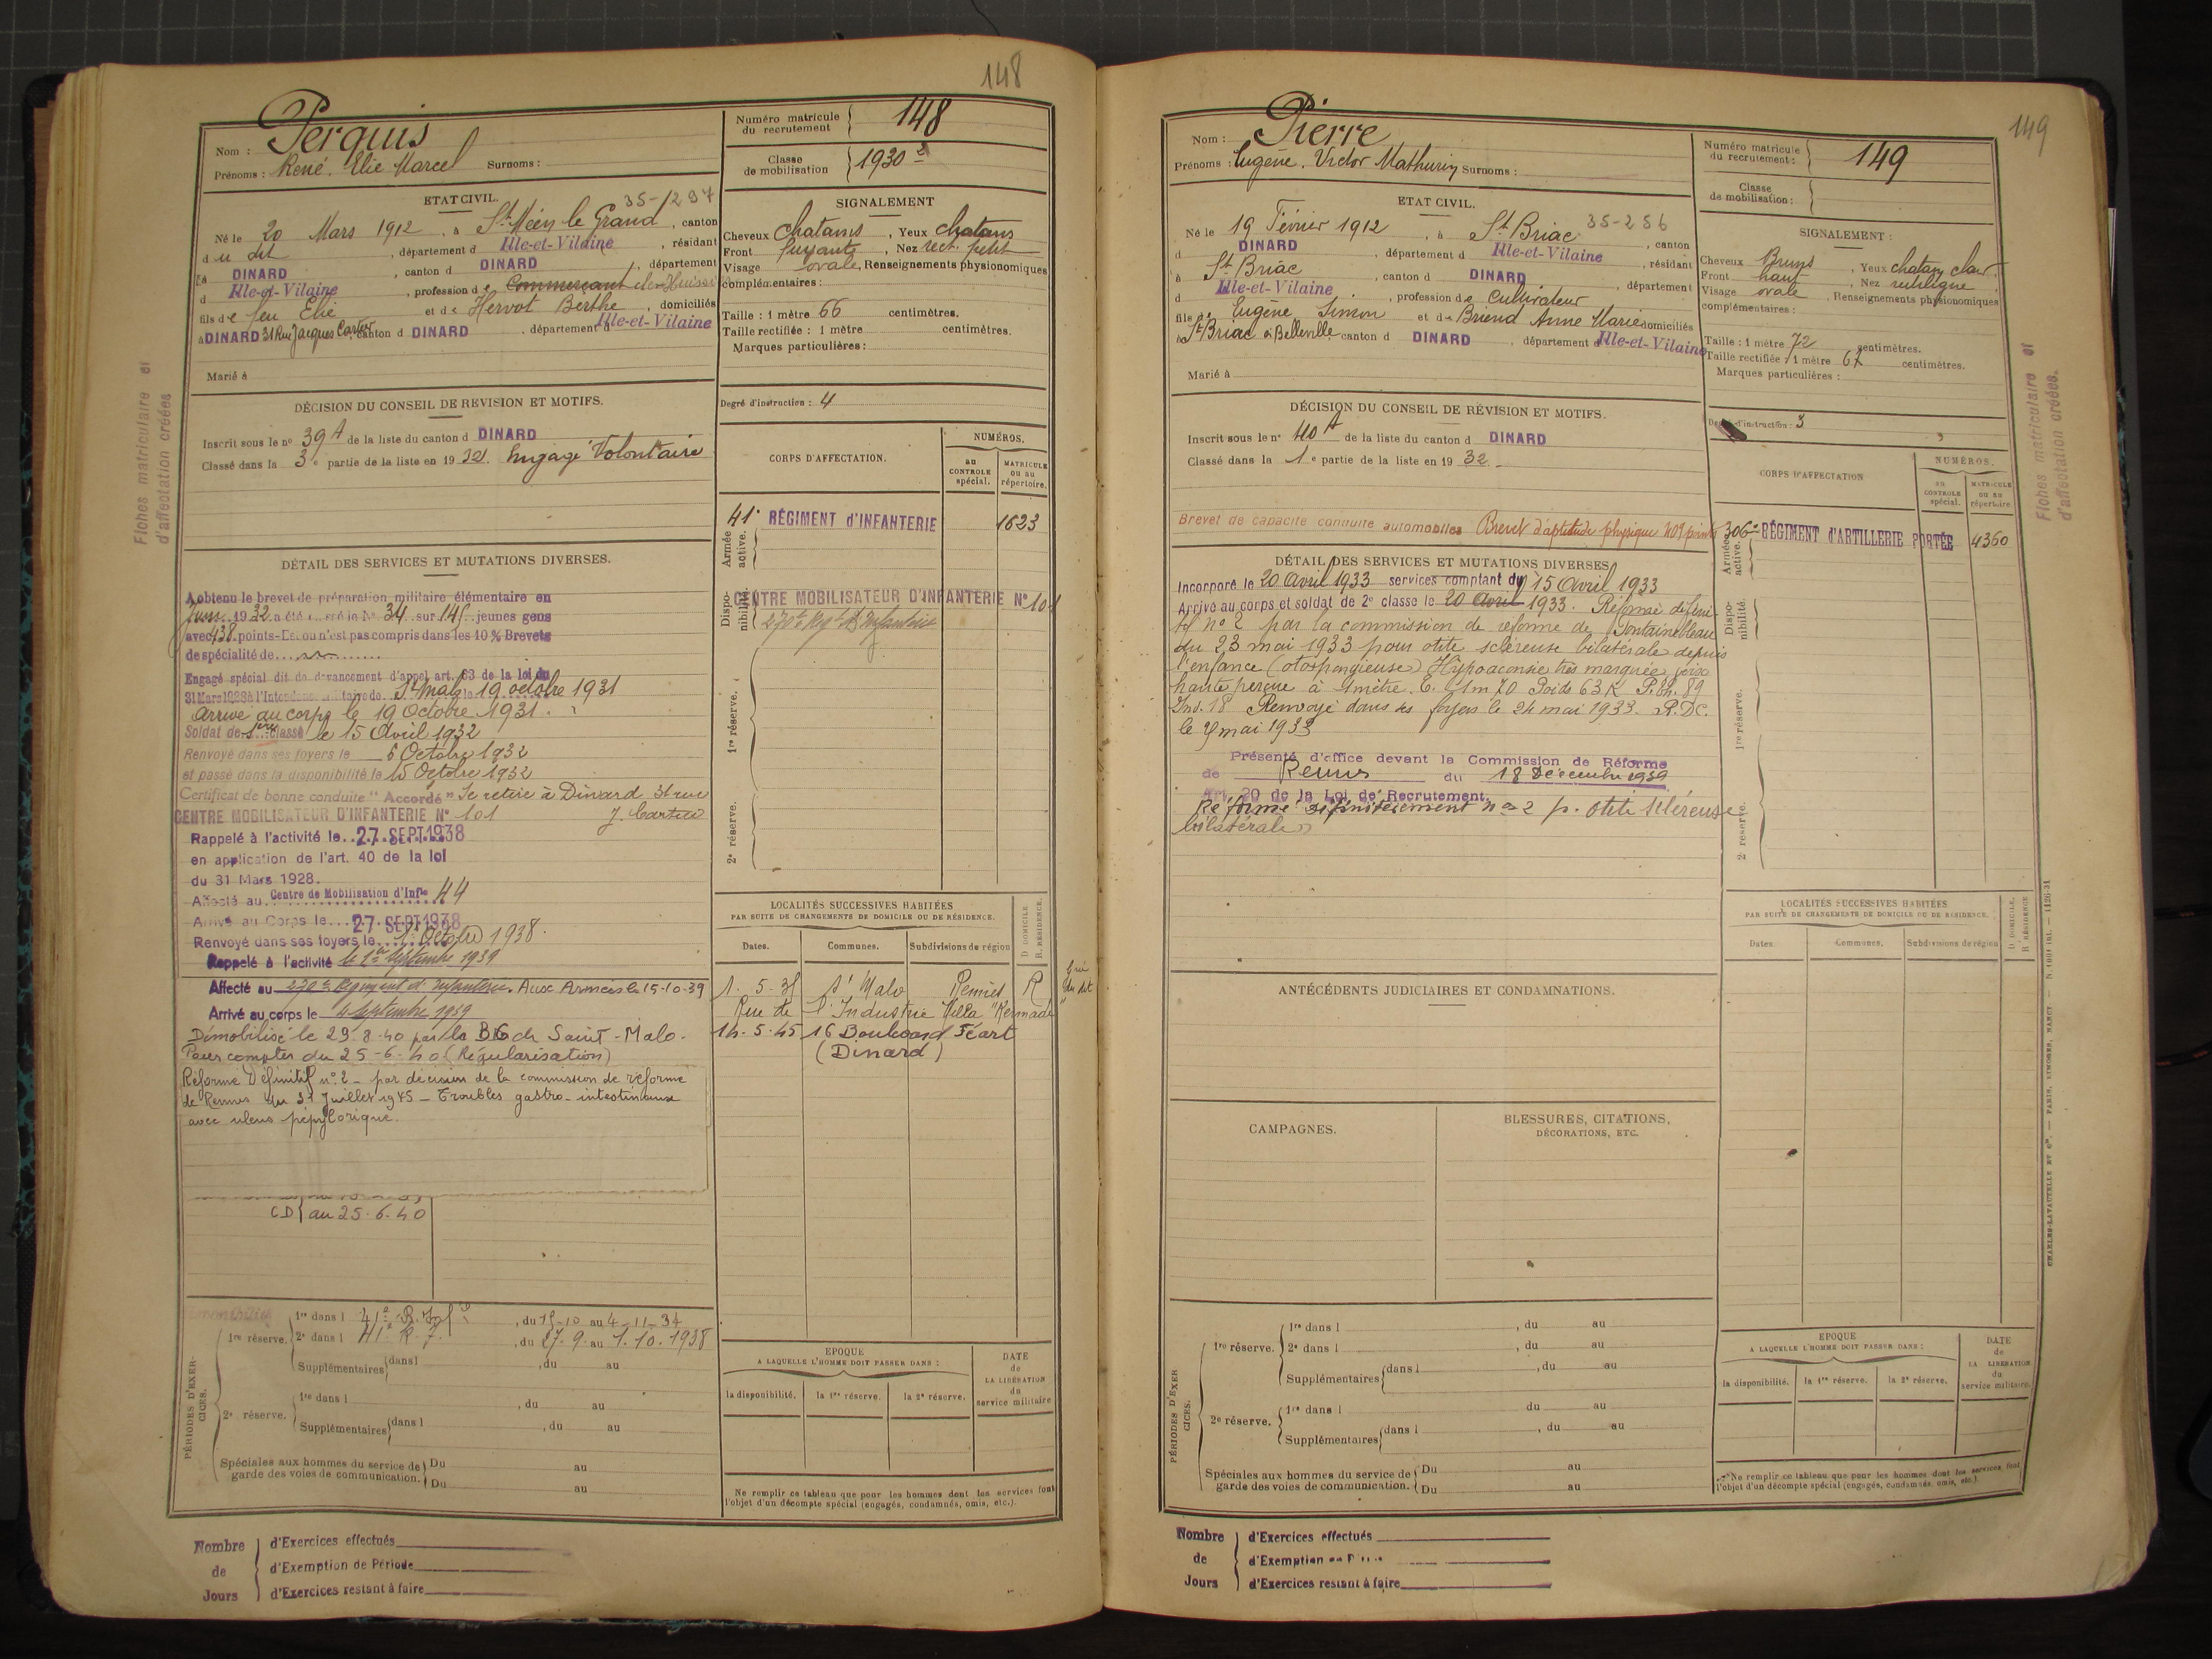 148
Nom : Perquis
Prénoms : René Elie Marcel Surnoms :
Numéro matricule du recrutement 148
Classe de mobilisation 1930
ETAT CIVIL. 35-1297
Né le 20 Mars 1912, à St Méen le Grand, canton
du dit, département d Ille-et-Vilaine, résidant
à DINARD, canton d DINARD, département
d Ille-et-Vilaine, profession de Commerçant
fils de feu Elie et de Hervot Berthe, domiciliés
à DINARD 31 Rue Jacques Cartier, canton d DINARD, département d Ille-et-Vilaine
Marié à
SIGNALEMENT
Cheveux chatains, Yeux chatans
Front fuyant, Nez rect. petit
Visage ovale, Renseignements physionomiques
complémentaires :
Taille : 1 mètre 66 centimètres.
Taille rectifiée : 1 mètre centimètres.
Marques particulières :
Degré d'instruction : 4
DÉCISION DU CONSEIL DE REVISION ET MOTIFS.
Inscrit sous le n° 39 A de la liste du canton d DINARD
Classé dans la 3e partie de la liste en 1932. Engagé Volontaire
CORPS D'AFFECTATION.
NUMÉROS.
au CONTROLE spécial.
MATRICULE ou au répertoire.
Armée active.
41e RÉGIMENT d'INFANTERIE 1623
Disponibilité.
CENTRE MOBILISATEUR D'INFANTERIE N° 101
270e Regt d'Infanterie
1re réserve.
2e réserve.
Fiches matriculaire et d'affectation créées
DÉTAIL DES SERVICES ET MUTATIONS DIVERSES.
A obtenu le brevet de préparation militaire élémentaire en
Juin 1932 a été classé le N° 34 sur 145 jeunes gens
avec 438 points - Est ou n'est pas compris dans les 10 % Brevets
de spécialité de
Engagé spécial dit de devancement d'appel art. 63 de la loi du
31 Mars 1928 à l'Intendance militaire de St Malo le 19 octobre 1931
Arrivé au corps le 19 Octobre 1931.
Soldat de 1ère classe le 15 Avril 1932
Renvoyé dans ses foyers le 6 Octobre 1932
et passé dans la disponibilité le 15 Octobre 1932
Certificat de bonne conduite "Accordé" Se retire à Dinard 31 rue
CENTRE MOBILISATEUR D'INFANTERIE N° 101 J. Cartier
Rappelé à l'activité le 27 SEPT 1938
en application de l'art. 40 de la loi
du 31 Mars 1928.
Affecté au Centre de Mobilisation d'Infie 44
Arrivé au Corps le 27 SEPT 1938
Renvoyé dans ses foyers le 1er Octobre 1938.
Rappelé à l'activité le 2 Septembre 1939
Affecté au 270e Régiment d'Infanterie. Aux Armées le 15-10-39
Arrivé au corps le 4 Septembre 1939
Démobilisé le 29.8.40 par la BG de Saint-Malo.
Pour compter du 25-6-40 (Régularisation)
Réformé Définitif n° 2 - par décision de la commission de réforme
de Rennes du 31 Juillet 1945 - Troubles gastro-intestinaux
avec ulcus pépylorique.
CD au 25.6.40
LOCALITÉS SUCCESSIVES HABITÉES
PAR SUITE DE CHANGEMENTS DE DOMICILE OU DE RÉSIDENCE.
Dates. Communes. Subdivisions de région D DOMICILE R RÉSIDENCE.
1.5.35 St Malo Rennes R
Rue de l'Industrie Villa "Kermade"
14.5.45 16 Boulevard Féart
(Dinard)
PÉRIODES D'EXERCICES.
1re réserve. 1re dans l 41e R. Inf, du 15-10 au 4-11-34
2e dans l 41e R. I., du 27.9. au 1.10.1938
Supplémentaires dans l, du au
2e réserve. 1re dans l, du au
Supplémentaires dans l, du au
Spéciales aux hommes du service de garde des voies de communication. Du au
Du au
EPOQUE
A LAQUELLE L'HOMME DOIT PASSER DANS :
la disponibilité. la 1re réserve. la 2e réserve.
DATE de LA LIBÉRATION du service militaire
Ne remplir ce tableau que pour les hommes dont les services font
l'objet d'un décompte spécial (engagés, condamnés, omis, etc.).
Nombre de Jours
d'Exercices effectués
d'Exemption de Période
d'Exercices restant à faire
149
Nom : Pierre
Prénoms : Eugène. Victor Mathurin Surnoms :
Numéro matricule du recrutement : 149
Classe de mobilisation :
ETAT CIVIL.
Né le 19 Février 1912, à St Briac 35-256, canton
d DINARD, département d Ille-et-Vilaine, résidant
à St Briac, canton d DINARD, département
d Ille-et-Vilaine, profession de cultivateur
fils de Eugène Simon et de Briend Anne Marie domiciliés
à St Briac à Belleville canton d DINARD, département d Ille-et-Vilaine
Marié à
SIGNALEMENT :
Cheveux Bruns, Yeux chatain clair
Front haut, Nez rectiligne
Visage ovale, Renseignements physionomiques
complémentaires :
Taille : 1 mètre 72 centimètres.
Taille rectifiée : 1 mètre 67 centimètres.
Marques particulières :
Degré d'instruction : 3
DÉCISION DU CONSEIL DE RÉVISION ET MOTIFS.
Inscrit sous le n° 40 A de la liste du canton d DINARD
Classé dans la 1e partie de la liste en 1932.
Brevet de capacité conduite automobiles Brevet d'aptitude physique 409 points
CORPS D'AFFECTATION
NUMÉROS.
au CONTROLE spécial.
MATRICULE ou au répertoire.
Armée active.
306e RÉGIMENT d'ARTILLERIE PORTÉE 4360
Disponibilité.
1re réserve.
2e réserve.
Fiches matriculaire et d'affectation créées.
DÉTAIL DES SERVICES ET MUTATIONS DIVERSES
Incorporé le 20 Avril 1933 services comptant du 15 Avril 1933
Arrivé au corps et soldat de 2e classe le 20 Avril 1933. Réformé défini
tif n° 2 par la commission de réforme de Fontainebleau
du 23 mai 1933 pour otite scléreuse bilatérale depuis
l'enfance (otospongieuse) Hypoacousie très marquée voix
haute perçue à 1 mètre. T. 1m70 Poids 63 K P.th. 89
Ind. 18 Renvoyé dans ses foyers le 24 mai 1933. R.D.C.
le 9 mai 1933
Présenté d'office devant la Commission de Réforme
de Rennes du 18 Décembre 1939
Art. 20 de la Loi de Recrutement.
Réformé définitivement n° 2 p. otite scléreuse
bilatérale
LOCALITÉS SUCCESSIVES HABITÉES
PAR SUITE DE CHANGEMENTS DE DOMICILE OU DE RÉSIDENCE.
Dates. Communes. Subdivisions de région D DOMICILE. R RÉSIDENCE
ANTÉCÉDENTS JUDICIAIRES ET CONDAMNATIONS.
CAMPAGNES.
BLESSURES, CITATIONS,
DÉCORATIONS, ETC.
PÉRIODES D'EXERCICES.
1re réserve. 1re dans l, du au
2e dans l, du au
Supplémentaires dans l, du au
2e réserve. 1re dans l du au
Supplémentaires dans l, du au
Spéciales aux hommes du service de garde des voies de communication. Du au
Du au
EPOQUE
A LAQUELLE L'HOMME DOIT PASSER DANS :
la disponibilité. la 1re réserve. la 2e réserve.
DATE de LA LIBÉRATION du service militaire.
Ne remplir ce tableau que pour les hommes dont les services font
l'objet d'un décompte spécial (engagés, condamnés, omis, etc.).
Nombre de Jours
d'Exercices effectués
d'Exemption
d'Exercices restant à faire